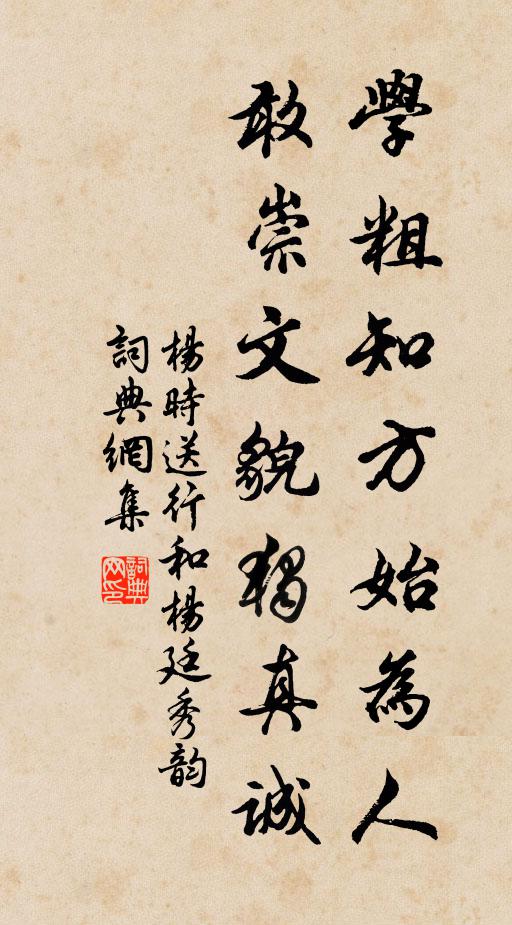 學粗知方始為人
敢崇文貌獨真誠
楊時送行和楊廷秀韵
詞典網集
詞典网印